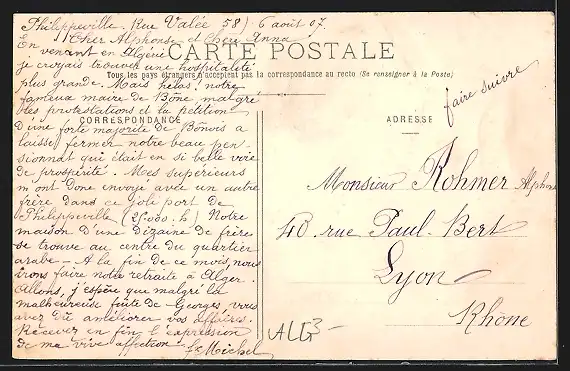 Philippeville Rue Valée 58) 6 août 07.
Cher Alphonse et Cheu Anna
En venant en Algérie
CARTE POSTALE
je croyais trouver une hospitalité
Tous les pays étrangers n'acceptent pas la correspondance au recto (Se renseigner à la Poste)
plus grande. Mais hélas! notre
fameux maire de Bône malgré
les protestations et la pétition
CORRESPONDANCE
d'une forte majorité de Bônois a
laissé fermer notre beau pen-
sionnat qui était en si belle voie
de prospérité. Mes supérieurs
m'ont donc envoyé avec un autre
frère dans ce joli port de
Philippeville (25.000. h) Notre
maison d'une dizaine de frères
se trouve au centre du quartier
arabe - A la fin de ce mois, nous
irons faire notre retraite à Alger.
Allons, j'espère que malgré la
malheureuse fuite de Georges, vous
avez dû améliorer vos affaires.
Recevez en fin, l'expression
de ma vive affection! f. Michel
ADRESSE
faire suivre
Monsieur Rohmer Alphonse
40. rue Paul-Bert
Lyon
Rhône
ALG3-